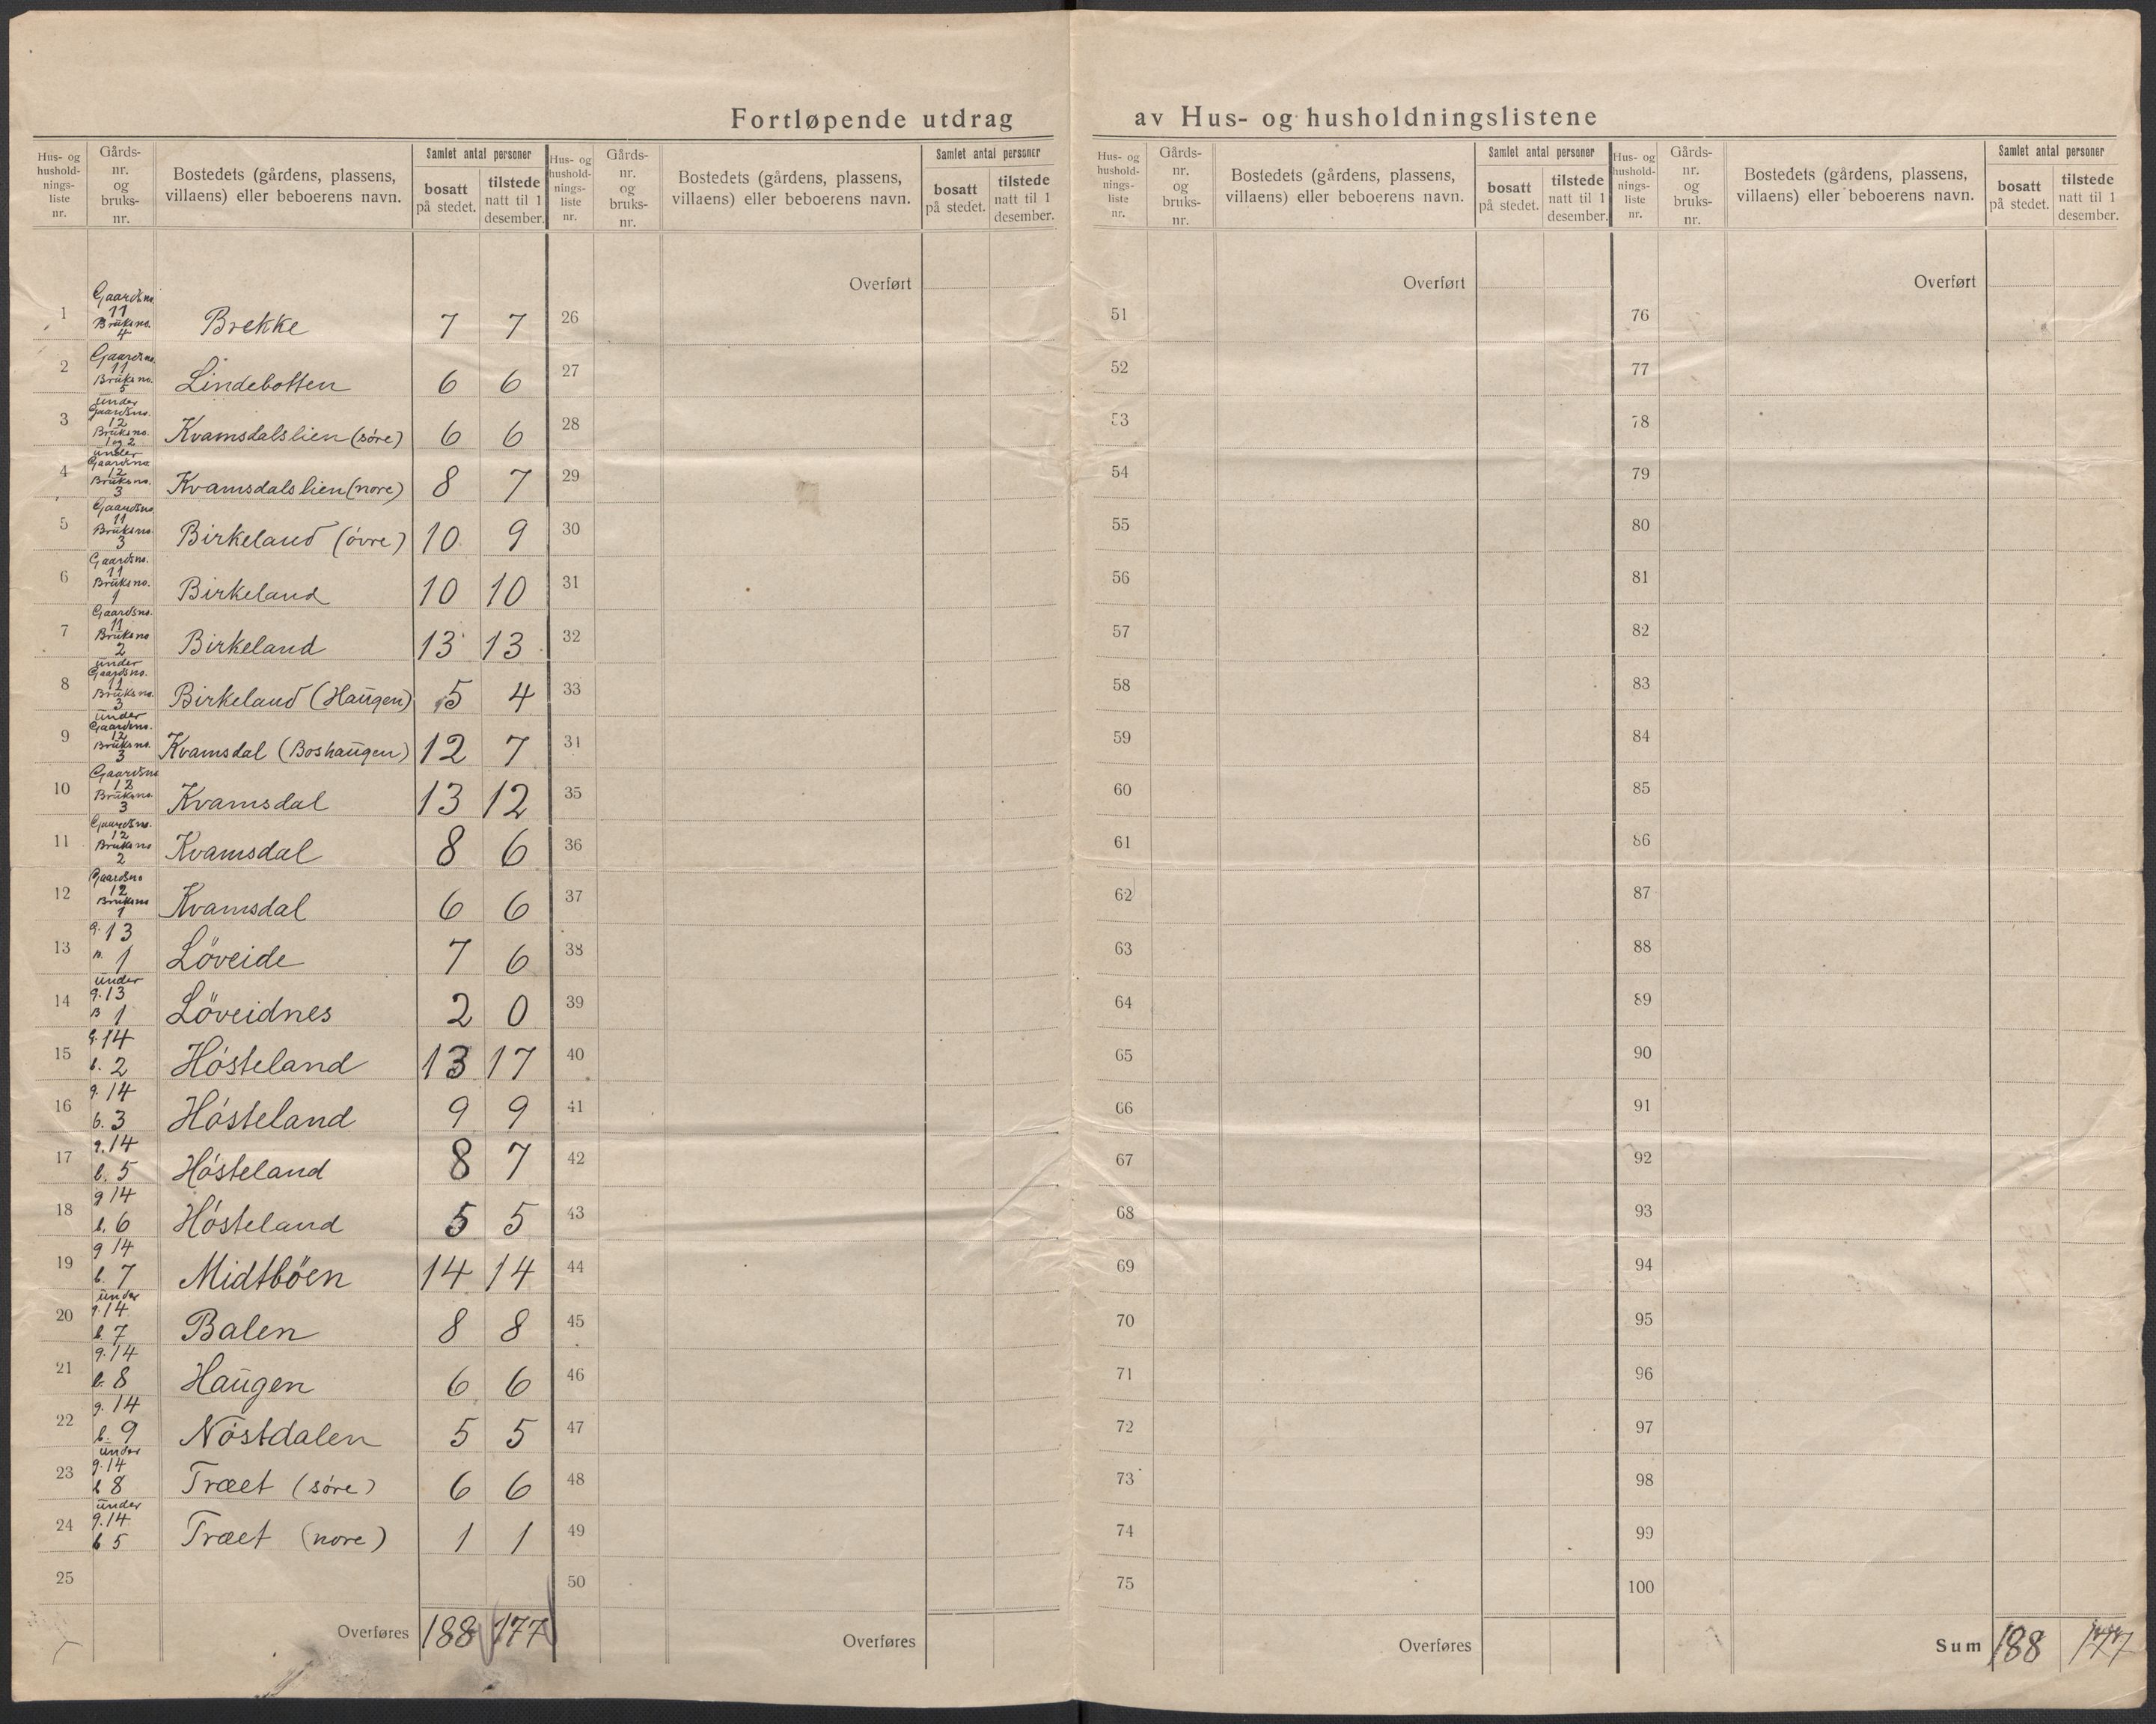 Fortløpende utdrag av Hus- og husholdningslistene
Hus- og hushold-nings-liste nr. | Gårds-nr. og bruks-nr. | Bostedets (gårdens, plassens, villaens) eller beboerens navn. | Samlet antal personer | bosatt på stedet. | tilstede natt til 1 desember.
Hus- og hushold-nings-liste nr. | Gårds-nr. og bruks-nr. | Bostedets (gårdens, plassens, villaens) eller beboerens navn. | Samlet antal personer | bosatt på stedet. | tilstede natt til 1 desember.
Hus- og hushold-nings-liste nr. | Gårds-nr. og bruks-nr. | Bostedets (gårdens, plassens, villaens) eller beboerens navn. | Samlet antal personer | bosatt på stedet. | tilstede natt til 1 desember.
Hus- og hushold-nings-liste nr. | Gårds-nr. og bruks-nr. | Bostedets (gårdens, plassens, villaens) eller beboerens navn. | Samlet antal personer | bosatt på stedet. | tilstede natt til 1 desember.
Overført Overført Overført
1 Gaardsno. 11 Bruksno. 4 Brekke 7 7 26 51 76
2 Gaardsno. 11 Bruksno. 5 Lindebotten 6 6 27 52 77
3 under Gaardsno. 12 Bruksno. 1 og 2 Kvamsdalslien (söre) 6 6 28 53 78
4 under Gaardsno. 12 Bruksno. 3 Kvamsdalslien (nore) 8 7 29 54 79
5 Gaardsno. 11 Bruksno. 3 Birkeland (övre) 10 9 30 55 80
6 Gaardsno. 11 Bruksno. 1 Birkeland 10 10 31 56 81
7 Gaardsno. 11 Bruksno 2 Birkeland 13 13 32 57 82
8 under Gaardsno. 11 Bruksno. 3 Birkeland (Haugen) 5 4 33 58 83
9 under Gaardsno. 12 Bruksno. 3 Kvamsdal (Boshaugen) 12 7 34 59 84
10 Gaardsno 12 Bruksno. 3 Kvamsdal 13 12 35 60 85
11 Gaardsno. 12 Bruksno 2 Kvamsdal 8 6 36 61 86
12 Gaardsno 12 Bruksno 1 Kvamsdal 6 6 37 62 87
13 g. 13 B. 1 Löveide 7 6 38 63 88
14 under g. 13 B 1 Löveidnes 2 0 39 64 89
15 g. 14 b. 2 Hösteland 13 17 40 65 90
16 g. 14 b. 3 Hösteland 9 9 41 66 91
17 g. 14 b. 5 Hösteland 8 7 42 67 92
18 g 14 b. 6 Hösteland 5 5 43 68 93
19 g 14 b. 7 Midtböen 14 14 44 69 94
20 under g. 14 b. 7 Balen 8 8 45 70 95
21 g. 14 b. 8 Haugen 6 6 46 71 96
22 g. 14 b. 9 Nöstdalen 5 5 47 72 97
23 under g. 14 b 8 Træet (söre) 6 6 48 73 98
24 under g. 14 b 5 Træet (nore) 1 1 49 74 99
25 50 75 100
Overføres 188 177 Overføres Overføres Sum 188 177